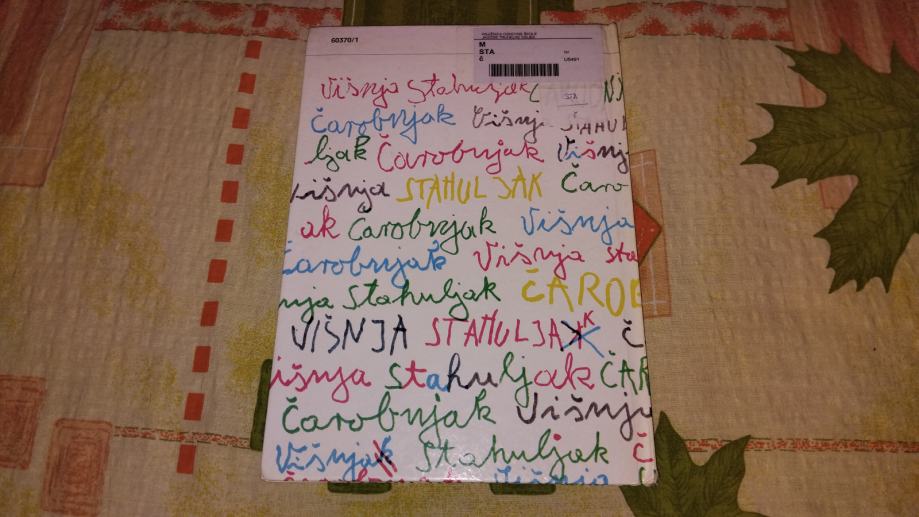 60370/1
M
STA
č
U5491
Višnja Stahuljak
Čarobnjak Višnj STAHUL
ljak Čarobnjak Višnj
Višnja STAHULJAK Čaro
ak Čarobnjak Višnja
Čarobnjak Višnja sta
nja Stahuljak ČAROB
VIŠNJA STAHULJAK Č
išnja Stahuljak ČAR
Čarobnjak Višnja
Višnja Stahuljak Č
Višnja